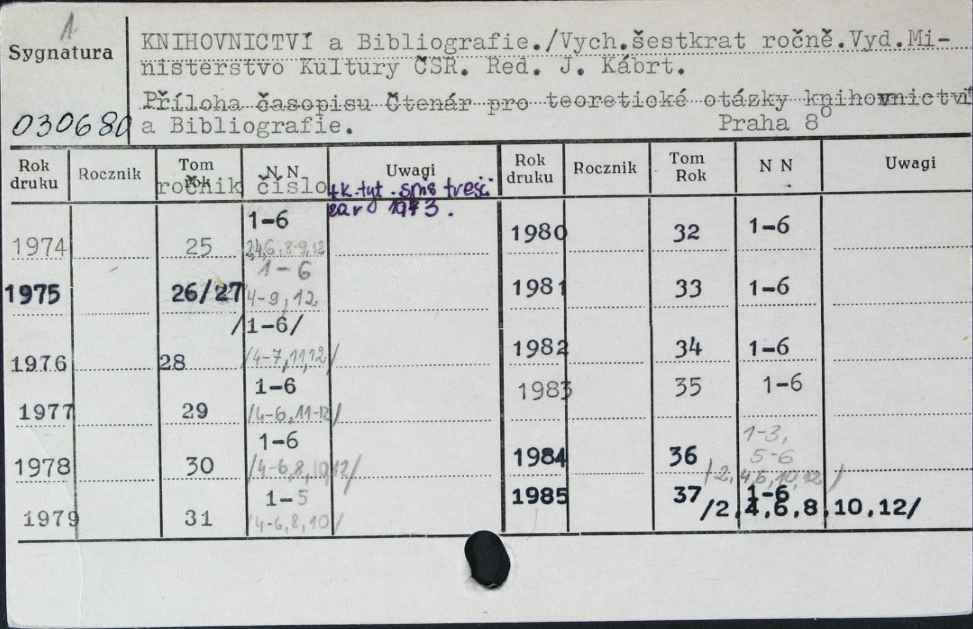 1
Sygnatura
030680
KNIHOVNICTVÍ a Bibliografie./Vych.šestkrat ročně.Vyd.Mi-
nisterstvo Kultury ČSR. Red. J. Kábrt.
Příloha časopisu Čtenár pro teoretické otázky knihovnictví
a Bibliografie. Praha 8°
Rok druku Rocznik Tom Rok N N Uwagi Rok druku Rocznik Tom Rok N N Uwagi
ročnik číslo
k. tyt. treści
za r 1973.
1974 25 1-6
2,4,6,8-9,12
1975 26/27 1-6
4-9,12
/1-6/
1976 28 /4-7,11,12/
1977 29 1-6
/4-6,11-12/
1978 30 1-6
/4-6,8,10,12/
1979 31 1-5
/4-6,8,10/
1980 32 1-6
1981 33 1-6
1982 34 1-6
1983 35 1-6
1984 36 1-3,
5-6
/2,4,6,10,12/
1985 37 1-6
/2,4,6,8,10,12/